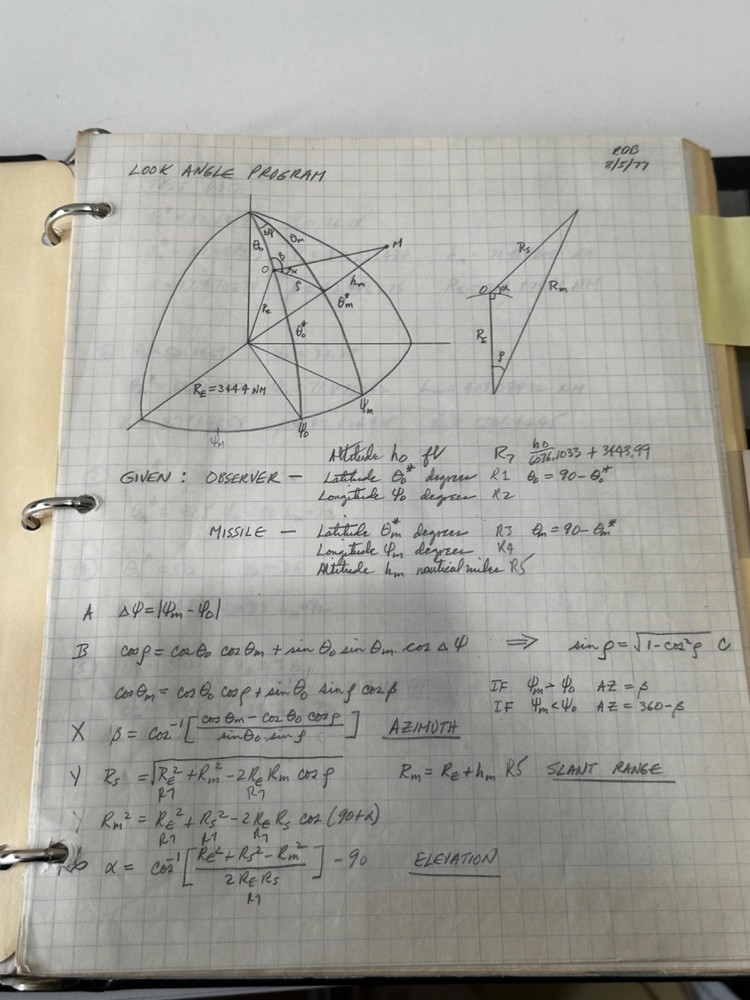 ROB
2/5/77
LOOK ANGLE PROGRAM
Δψ
θo
θm
M
β
O
α
ρ
hm
θm*
RE
θo*
RE = 3444 NM
ψm
ψo
ψM
Rs
O
α
Rm
RE
ρ
Altitude ho ft R7 ho/6076.1033 + 3443.99
GIVEN: OBSERVER — Latitude θo* degrees R1 θo = 90 - θo*
Longitude ψo degrees R2
MISSILE — Latitude θm* degrees R3 θm = 90 - θm*
Longitude ψm degrees R4
Altitude hm nautical miles R5
A Δψ = |ψm - ψo|
B cosρ = cosθo cosθm + sinθo sinθm cosΔψ ⇒ sinρ = √(1-cos²ρ) C
cosθm = cosθo cosρ + sinθo sinρ cosβ IF ψm > ψo AZ = β
IF ψm < ψo AZ = 360-β
X β = cos⁻¹[(cosθm - cosθo cosρ)/(sinθo sinρ)] AZIMUTH
Y Rs = √(RE² + Rm² - 2RE Rm cosρ) Rm = RE + hm R5 SLANT RANGE
R7 R7
Y Rm² = RE² + Rs² - 2RE Rs cos(90+α)
R7 R7 R7
α = cos⁻¹[(RE² + Rs² - Rm²)/(2RE Rs)] - 90 ELEVATION
R7